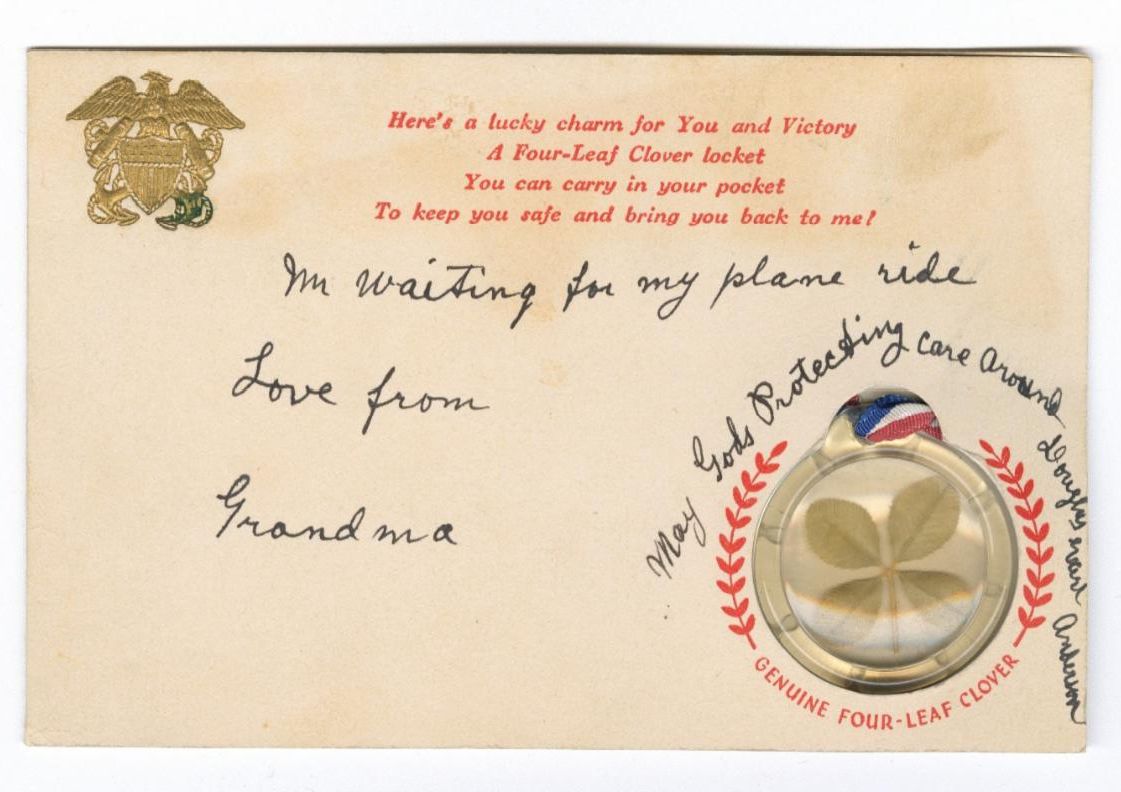 Here's a lucky charm for You and Victory
A Four-Leaf Clover locket
You can carry in your pocket
To keep you safe and bring you back to me!
Im waiting for my plane ride
Love from
Grandma
May Gods Protecting care Around Douglas Anderson
GENUINE FOUR-LEAF CLOVER